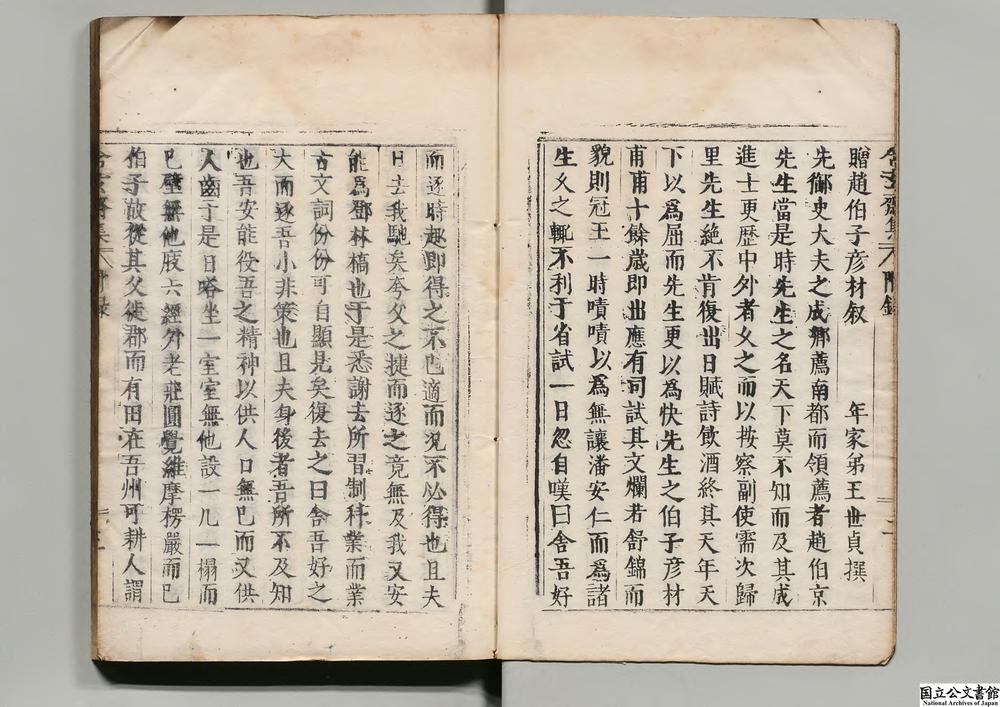 贈趙伯子彦材叙　年家弟王世貞撰
先御史大夫之成鄉薦南都而領薦者趙伯京
先生當是時先生之名天下莫不知而及其成
進士更歷中外者久之而以按察副使需次歸
里先生絶不肯復出日賦詩飲酒終其天年天
下以爲屈而先生更以爲快先生之伯子彦材
甫甫十餘歲即出應有司試其文爛若舒錦而
貌則冠玉一時嘖嘖以爲無讓潘安仁而爲諸
生久之輒不利于省試一日忽自嘆曰舍吾好
而逐時趣即得之不巳適而況不必得也且夫
日去我馳矣夸父之捷而逐之竟無及我又安
能爲鄧林槁也于是悉謝去所習制科業而業
古文詞份份可自顯見矣復去之曰舍吾好之
大而逐吾小非策也且夫身後者吾所不及知
也吾安能役吾之精神以供人口無巳而又供
人齒于是日嗒坐一室室無他設一几一榻而
巳壁無他庋六經外老莊圓覺維摩楞嚴而巳
伯子故從其父徙郡而有田在吾州可耕人謂
含玄齋集　附錄
国立公文書館
National Archives of Japan